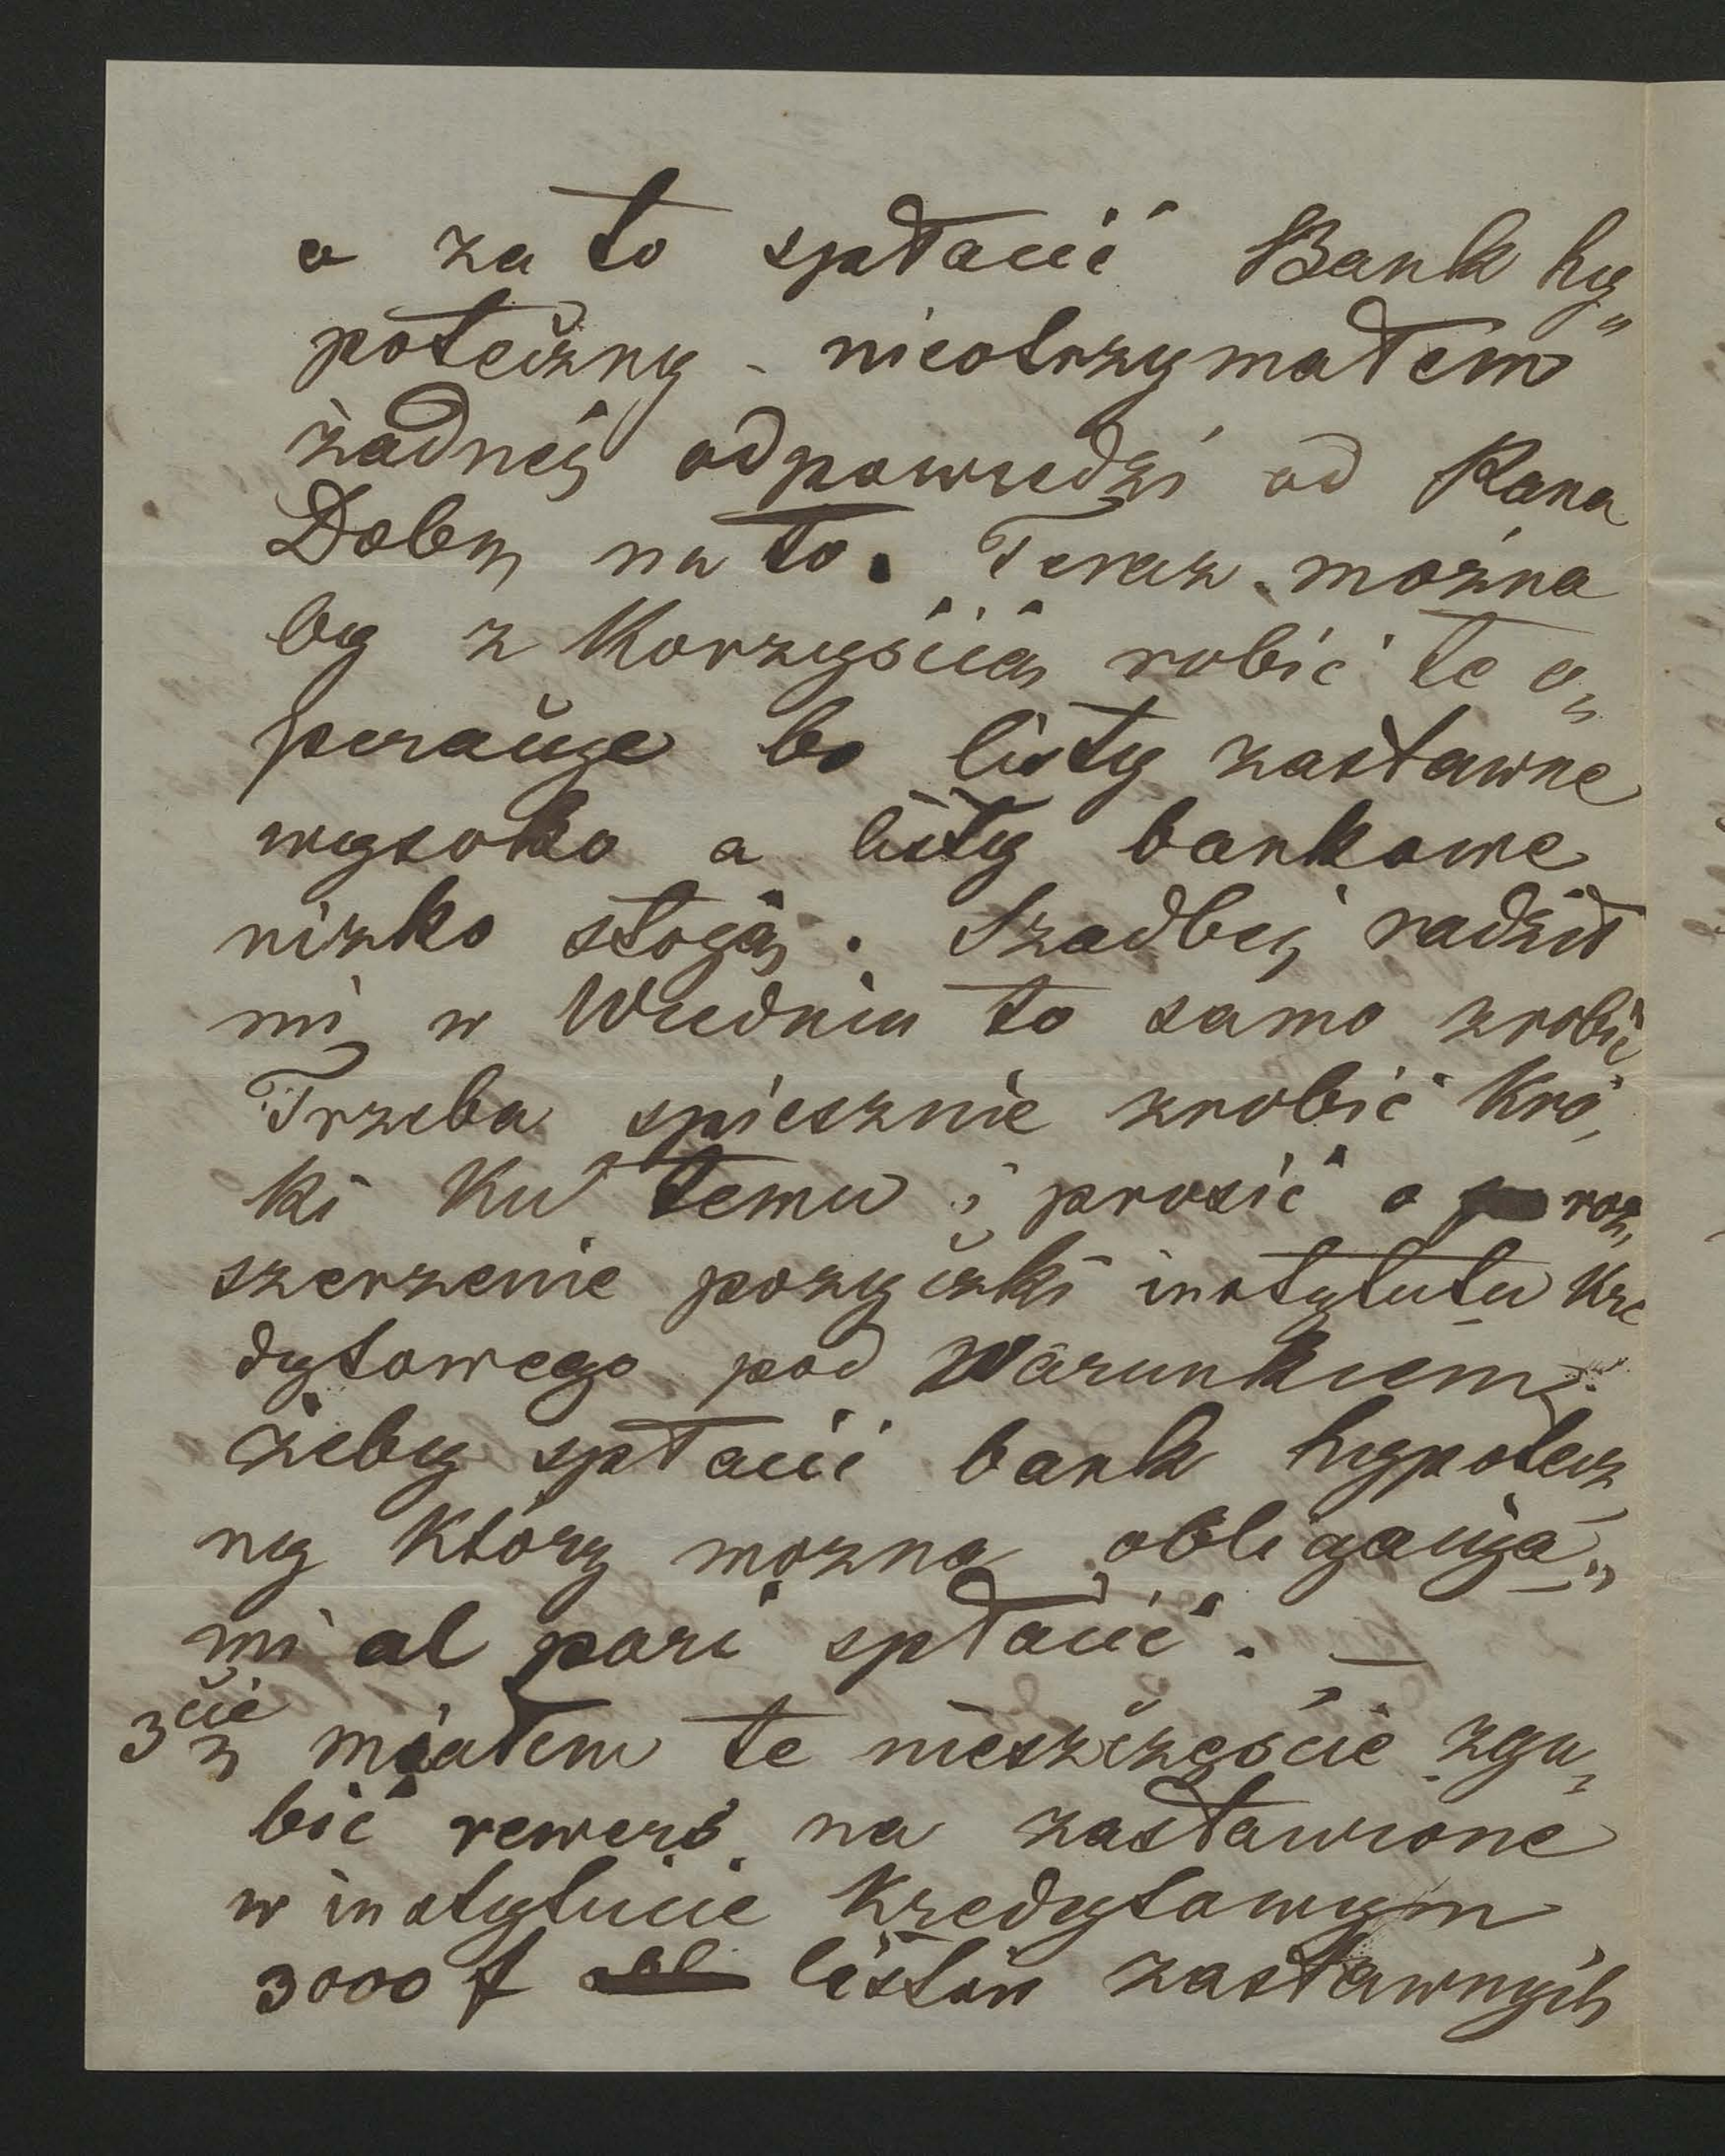 a za to spłacić Bank hy„
poteczny - nieotrzymałem
żadnéj odpowiedzi od Pana
Dobr. na to. Teraz można
by z korzyścią robić te o„
peracije bo listy zastawne
wysoko a listy bankowe
nizko stoją. Szadbej radził
mi w Wiedniu to samo zrobić
Trzeba spiesznie zrobić kro„
ki ku temu i prosić o roz„
szerzenie pożyczki instytutu kre
dytowego pod warunkiem
żeby spłacić bank hypotecz„
ny który można obligacija„
mi al pari spłacić. —
3cie miałem te nieszczęście zgu„
bić rewers na zastawione
w instytucie kredytowym
3000 f listów zastawnych